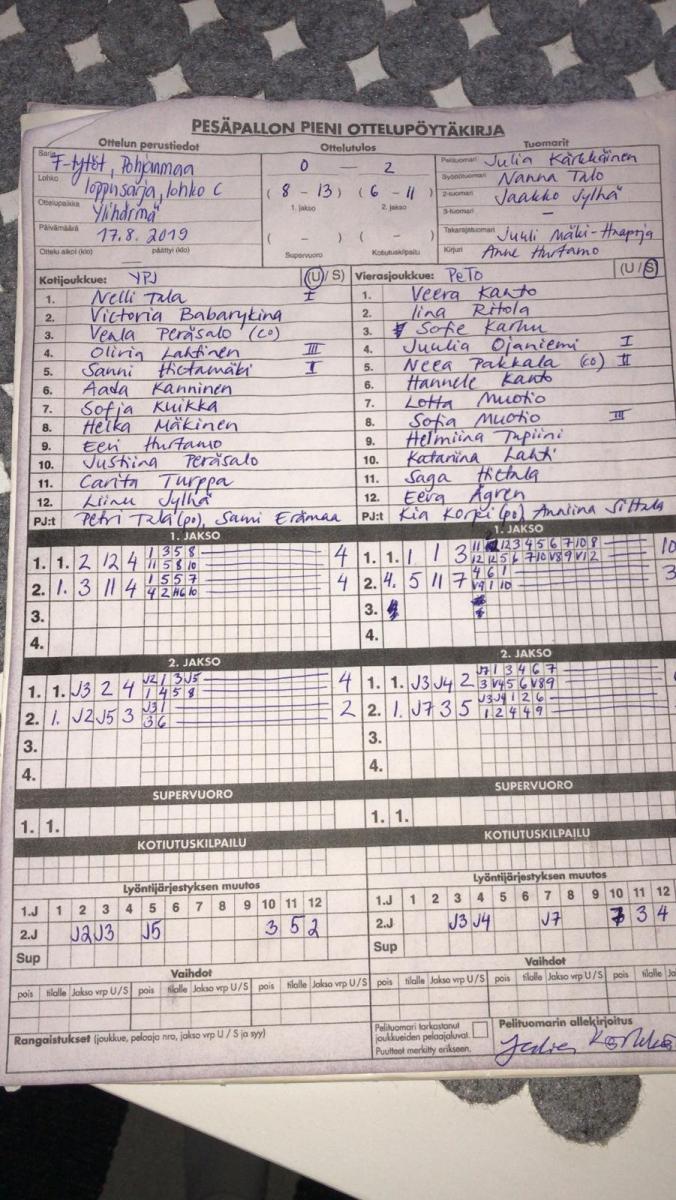 PESÄPALLON PIENI OTTELUPÖYTÄKIRJA
Ottelun perustiedot
Sarja F-tytöt, Pohjanmaa
Lohko loppusarja, lohko C
Ottelupaikka Ylihärmä
Päivämäärä 17.8.2019
Ottelu alkoi (klo) — päättyi (klo)
Ottelutulos
0 — 2
( 8 - 13 ) ( 6 - 11 )
1. jakso 2. jakso
( - ) ( - )
Supervuoro Kotiutuskilpailu
Tuomarit
Pelituomari Julia Kärkkäinen
Syöttötuomari Nanna Talo
2-tuomari Jaakko Jylhä
3-tuomari —
Takarajatuomari Juuli Mäki-Haapoja
Kirjuri Anne Hurtamo
Kotijoukkue: YPJ (U/S)
1. Nelli Tala I
2. Victoria Babarykina
3. Venla Peräsalo (co)
4. Olivia Lahtinen III
5. Sanni Hietamäki I
6. Aada Kanninen
7. Sofja Kuikka
8. Helka Mäkinen
9. Eevi Hurtamo
10. Justiina Peräsalo
11. Carita Turppa
12. Liinu Jylhä
PJ:t Petri Tala (po), Sami Erämaa
Vierasjoukkue: PeTo (U/S)
1. Veera Kanto
2. Iina Ritola
3. Sofie Karhu
4. Juulia Ojaniemi I
5. Neea Pakkala (co) II
6. Hannele Kanto
7. Lotta Muotio
8. Sofia Muotio III
9. Helmiina Tupiini
10. Katariina Lahti
11. Saga Hietala
12. Eeva Ågren
PJ:t Kia Korpi (po) Anniina Siltala
1. JAKSO
1. 1. 2 12 4 1 3 5 8 4
11 5 8 10
2. 1. 3 11 4 1 5 5 7 4
4 2 H6 10
3.
4.
1. JAKSO
1. 1. 1 1 3 11 12 3 4 5 6 7 10 8 10
12 12 5 6 7 10 V8 9 V12
2. 4. 5 11 7 4 6 1 3
V9 1 10
3.
4.
2. JAKSO
1. 1. J3 2 4 J2 1 3 J5 4
1 4 5 8
2. 1. J2 J5 3 J3 1 2
3 6
3.
4.
2. JAKSO
1. 1. J3 J4 2 J7 1 3 4 6 7
3 V4 5 6 V8 9
2. 1. J7 3 5 J3 J4 1 2 6
1 2 4 4 9
3.
4.
SUPERVUORO
1. 1.
SUPERVUORO
1. 1.
KOTIUTUSKILPAILU
KOTIUTUSKILPAILU
Lyöntijärjestyksen muutos
1.J 1 2 3 4 5 6 7 8 9 10 11 12
2.J J2 J3 J5 3 5 2
Sup
Lyöntijärjestyksen muutos
1.J 1 2 3 4 5 6 7 8 9 10 11 12
2.J J3 J4 J7 3 4
Sup
Vaihdot
pois tilalle Jakso vrp U / S pois tilalle Jakso vrp U / S pois tilalle Jakso vrp U / S
Vaihdot
pois tilalle Jakso vrp U / S pois tilalle Jakso vrp U / S pois tilalle
Rangaistukset (joukkue, pelaaja nro, jakso vrp U / S ja syy)
Pelituomari tarkastanut
joukkueiden pelaajaluvat.
Puutteet merkitty erikseen.
Pelituomarin allekirjoitus